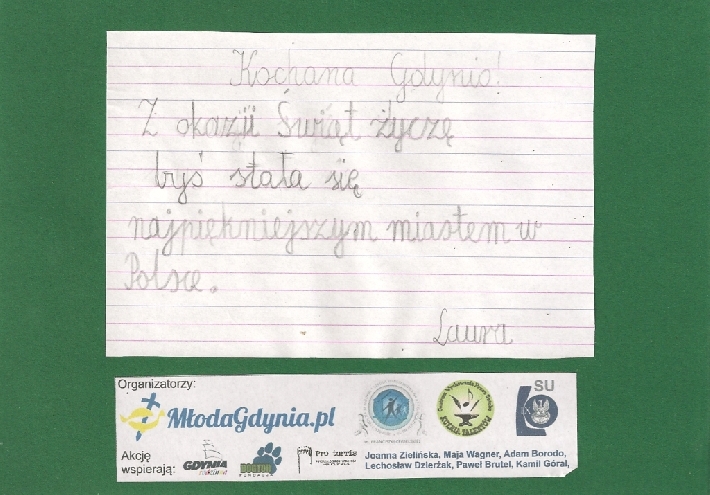 Kochana Gdynio!
Z okazji Świąt życzę
byś stała się
najpiękniejszym miastem w
Polsce.
Laura
Organizatorzy:
MłodaGdynia.pl
SU
Akcję
wspierają:
GDYNIA
Pro turris
Joanna Zielińska, Maja Wagner, Adam Borodo,
Lechosław Dzierżak, Paweł Brutel, Kamil Góral,